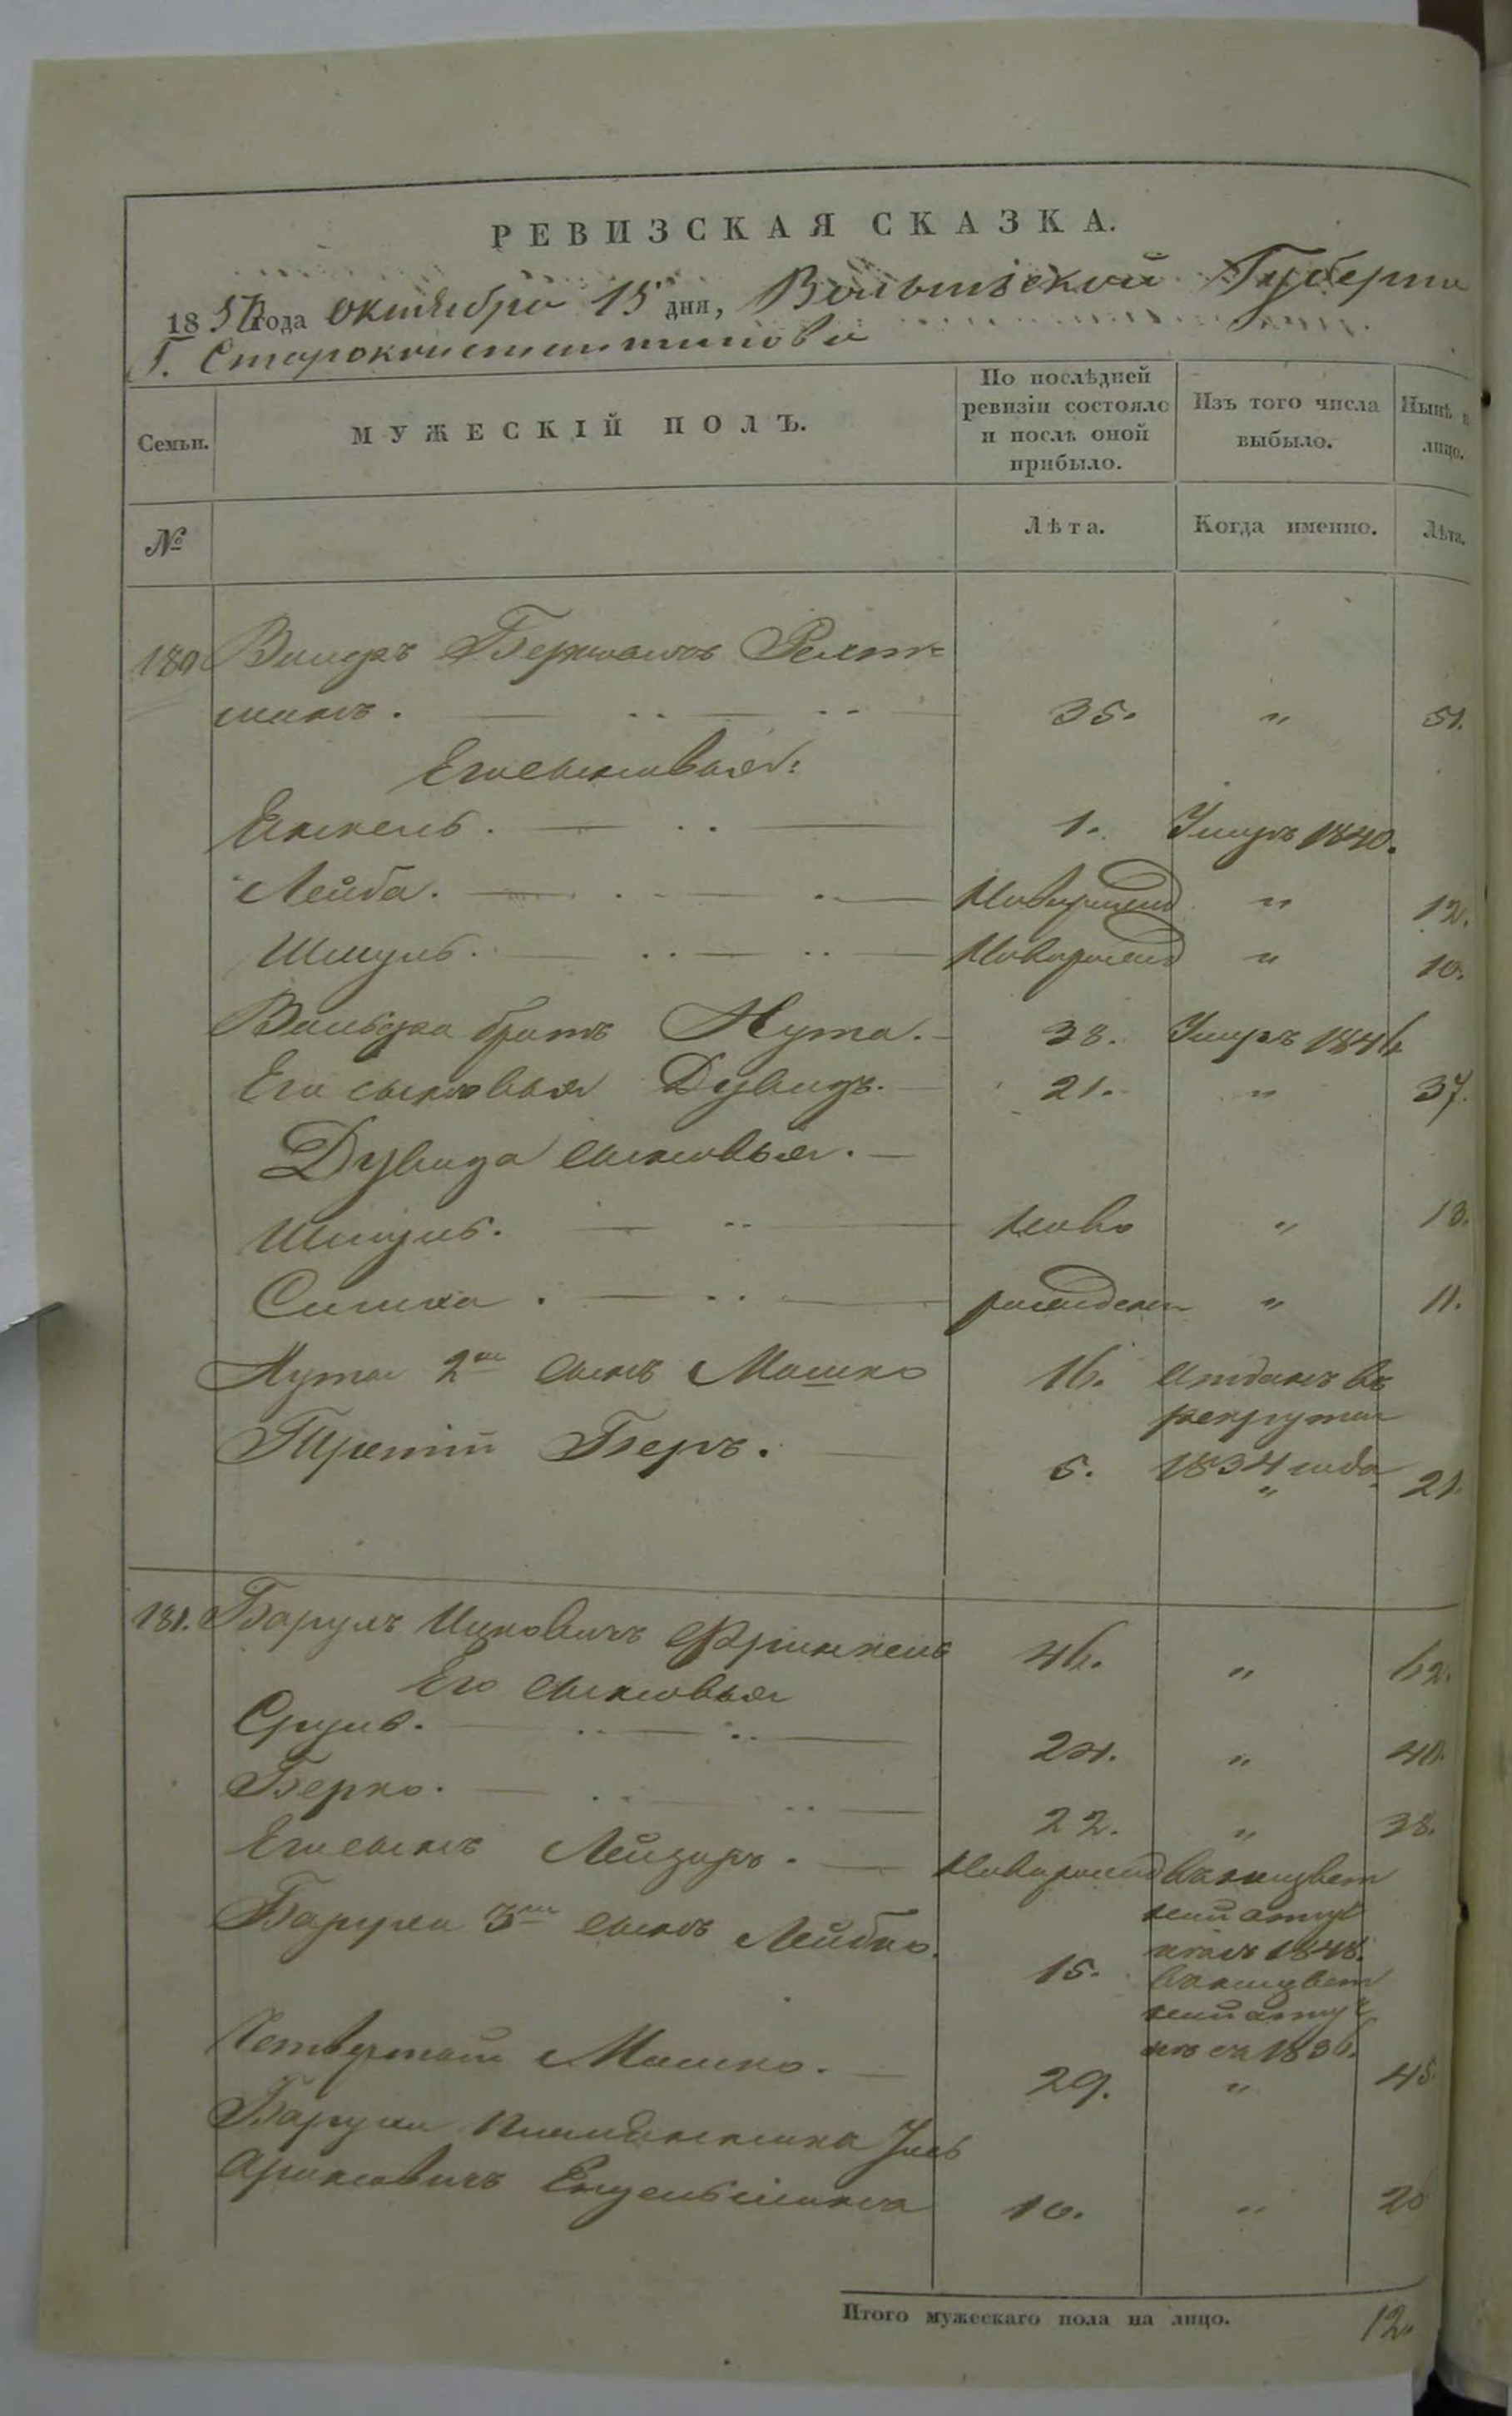 РЕВИЗСКАЯ СКАЗКА.
1850 года октября 15 дня, Волынской Губерни
Г. Староконстантинова
Семьи.
МУЖЕСКІЙ ПОЛЪ.
По послѣдней ревизіи состояло и послѣ оной прибыло.
Изъ того числа выбыло.
Нынѣ н лицо.
№
Лѣта.
Когда именно.
Лѣта.
180 Вигдръ Берковичъ
35. " 51.
Его сыновья:
Янкель. 1. Умеръ 1840.
Лейба. Новорожд " 12.
Шмуль. Новорожд " 10.
братъ Нута. 38. Умеръ 1846
Его сыновья Дувидъ. 21. " 37.
Дувида сыновья.
Шмуль. ново " 13.
Симха. рожденъ " 11.
Нуты 2й сынъ Мошко 16. отданъ въ
рекруты
Третій Беръ. 5. 1834 года
" 21.
181. Барухъ Ицковичъ Френкель 46. " 62.
Его сыновья
Сруль. 24. " 40.
Берко. 22. " 38.
Его сынъ Лейзоръ. Новорожд въ неизвест
ной отлуч
Баруха 3й сынъ Лейбко. кѣ съ 1848.
15. въ неизвест
ной отлуч
кѣ съ 1836.
Четвертый Мошко. 29. " 45.
Баруха племянника
Ароновичъ 10. " 26
Итого мужескаго пола на лицо. 12.